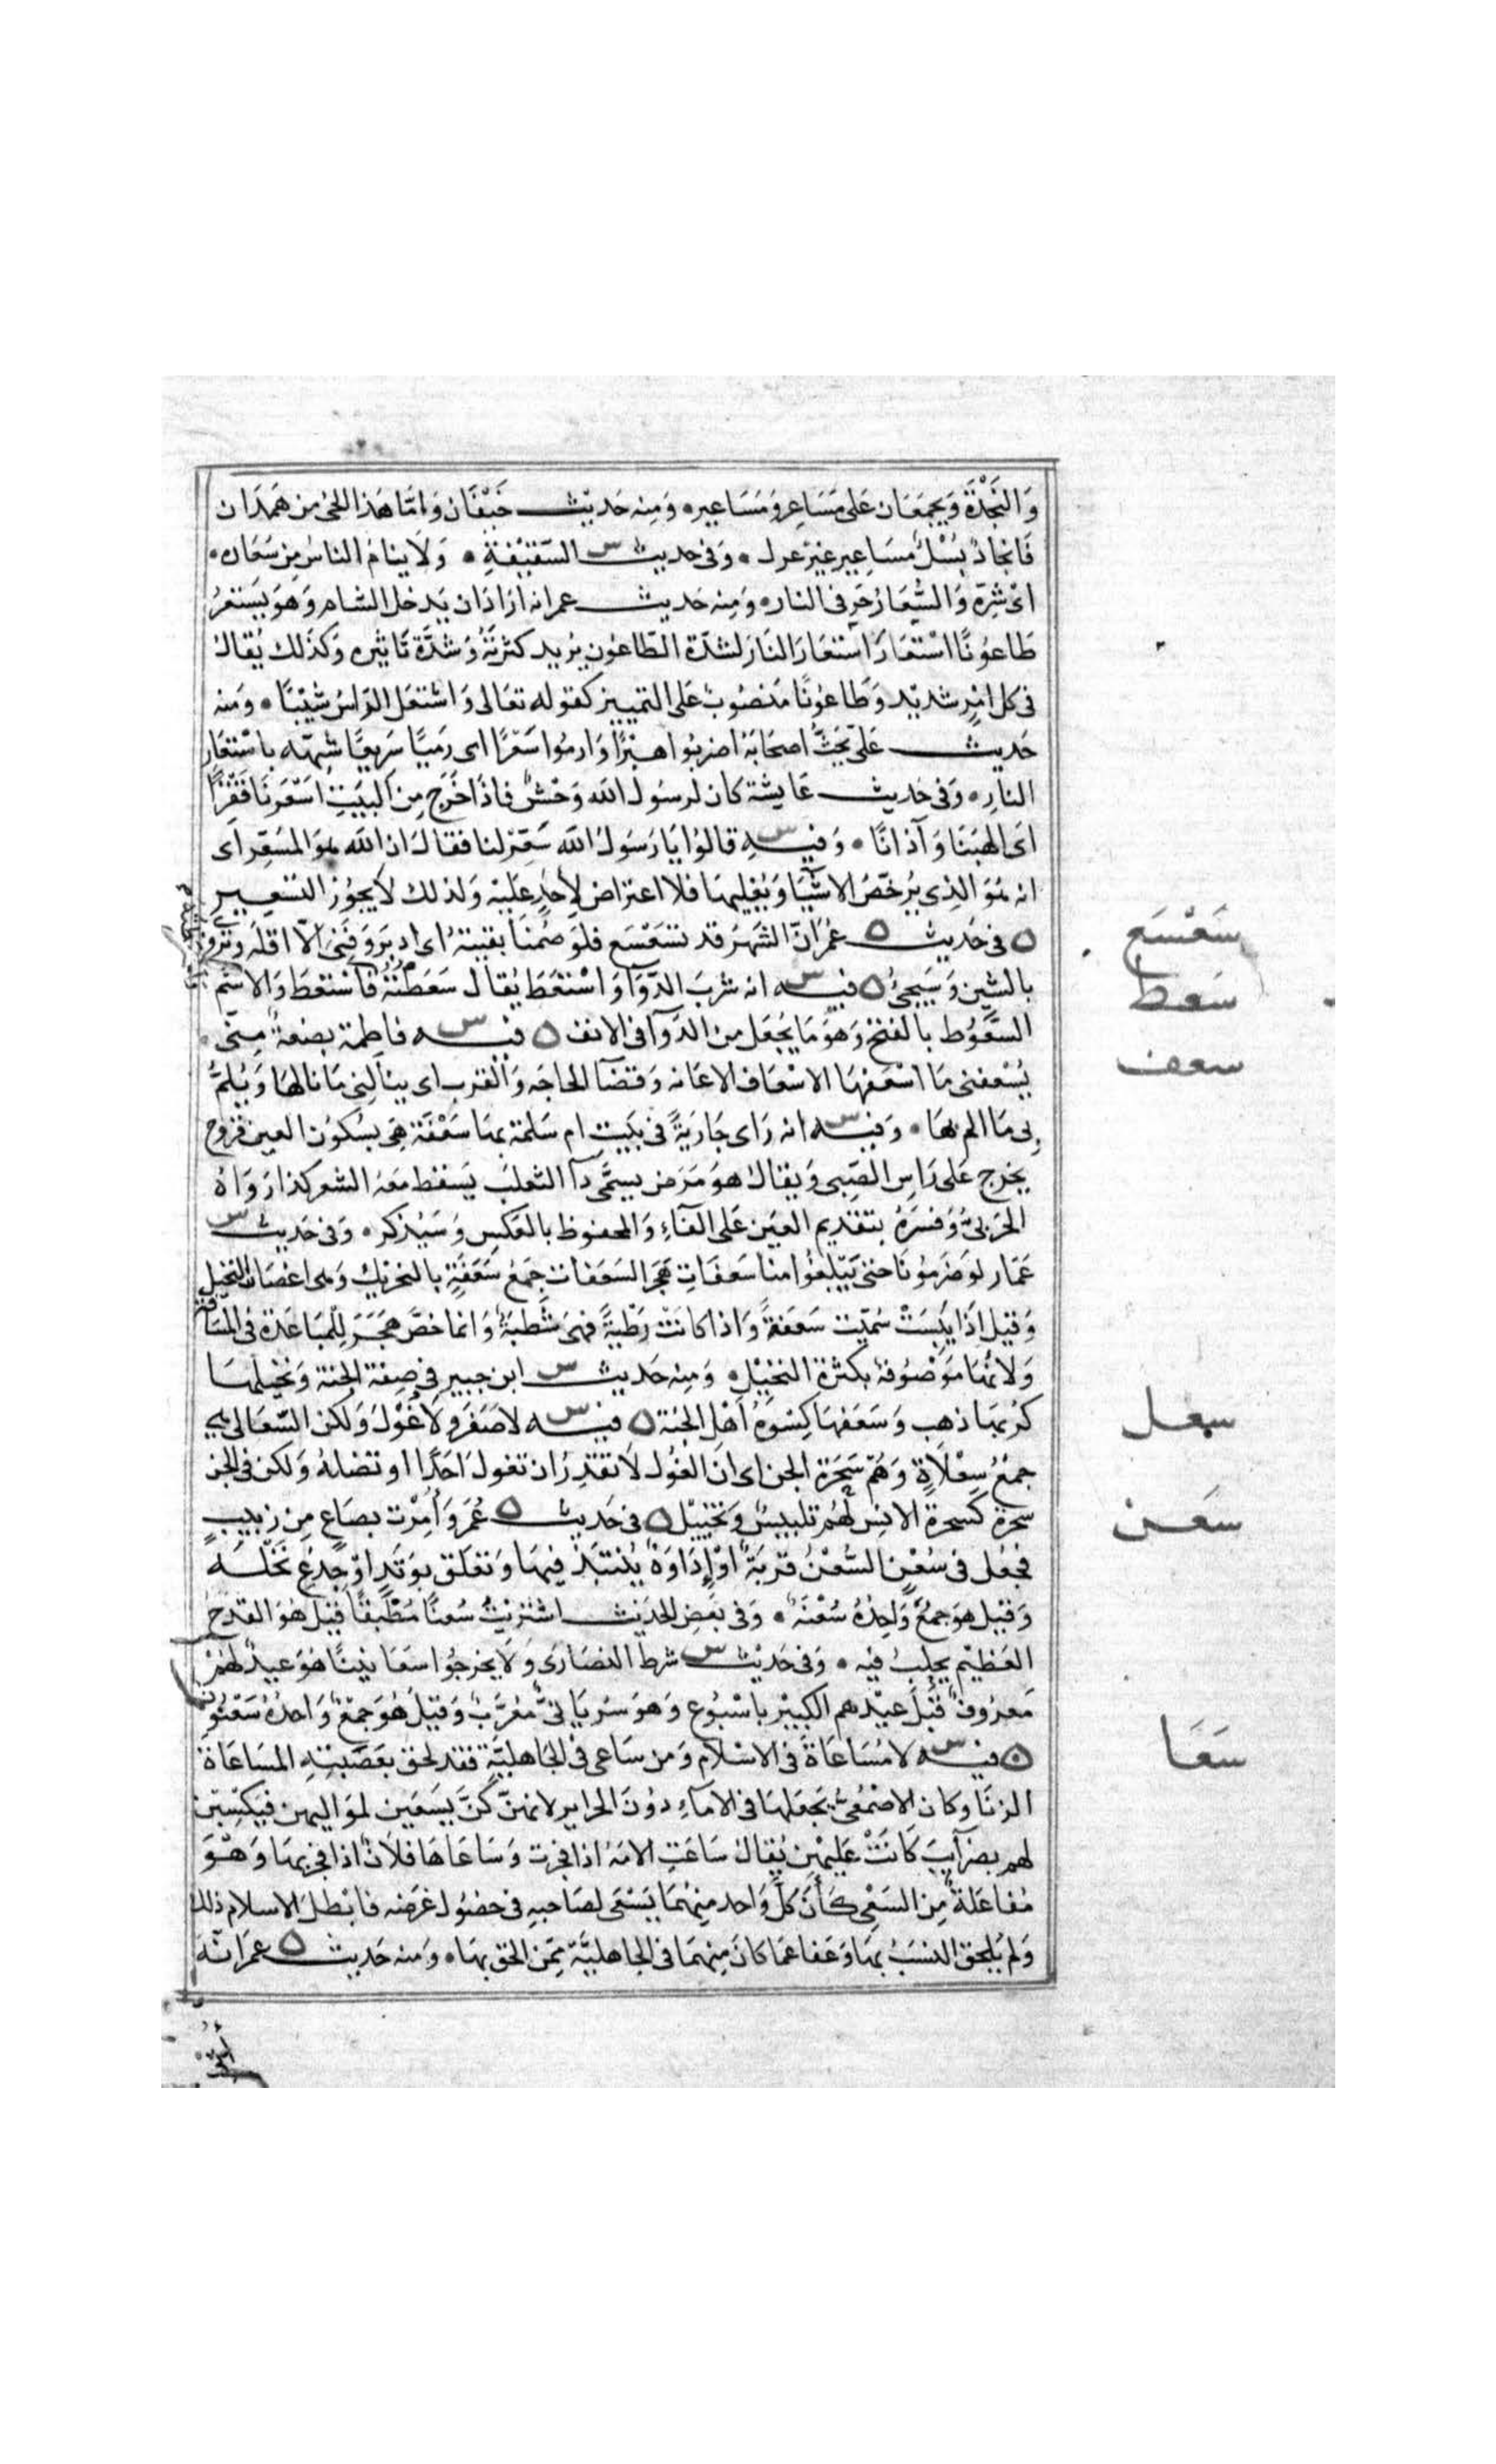 وَالنَّجْدَة وَيجمَعَان عَلى مَسَاعِر وَمَسَاعِير ه وَمِنه حَديث خَيْفَان وَامَّا هَذا الحىُ من هَمدَان
فَانجادٌ بُسُلٌ مسَاعِير غيرُ عزل ه وَفى حديث س السَّقِيْفَةِ ه وَلا ينامُ الناسُ مِن سُعَاره ه
اىْ شرِّه وَالسُّعَارُ حَر فى النار ه وَمِنه حديث عمر انه ارَادَ ان يَدخل الشام وَهوَ يَستعرُ
طَاعوُنًا اسْتعَارَ اسْتعَارَ النَار لشدّة الطّاعوُن يرُيد كثرتَهُ وَشدَّةَ تَاثيره وَكذَلك يُقالُ
فى كل امْرٍ شديْد وَطَاعوُنًا مَنصُوبٌ عَلى التمييز كقوله تعَالى وَاشتعَل الرَّاسُ شَيْبًا ه وَمنه
حَديث عَلىّ يَحُثُّ اصحَابَهُ اضربُوا هَبْرًا وَارموُا سَعْرًا اى رَميًا سَريعًا شبهّه باسْتعَار
النارِ ه وَفى حَديث عَايشة كان لرسُول اللَّه وَحْشٌ فاذَا خَرَج مِن البيَتِ اسْعَرنَا قَفْزًا
اى الهبَنَا وَآذانَا ه وَفيــه س قالوُا يَا رَسَولَ اللَّه سَعِّر لنا فقالَ ان اللَّه هوَ المسَعِّر اى
انه هُوَ الذِى يرُخصُ الاشيَا وَيُغليهَا فلا اعتراض لِأحَدٍ علَيْه وَلذلك لا يجوُز التسّعير
ه فى حَديث ه عُمَرَ انَّ الشهَرُ قد تسَعْسَع فلوَ صُمنَا بقيتهُ اى ادبرَ وَفَنِىَ الاّ اقله وَيرُوى
بالشين وَسَيجىُ ه فيــه س انه شربَ الدَّوَآ وَاسْتعَطَ يُقال سَعَطتهُ فاسْتعَطَ وَالاسْمُ
السَّعُوط بالفتح وَهوَ مَا يُجعَل مِن الدَّوآ فى الانف ه فيــه س فاطِمة بضعةٌ مِنّى ه
يُسْعفنى مَا اسْعَفهَا الاسْعَاف الاعَانه وَقضَآ الحاجَه وَالقرب اى ينَالنِى مَا نالهَا وَيُلمُّ
بِى مَا الم بهَا ه وَفيــه س انه رَاى جَارَيَةً فى بَيت ام سَلمَة بهَا سَعْفَة هىَ بسكوُن العين قروح
يخرج عَلى رَاسِ الصَّبِى وَيقالُ هوَ مَرَض يسمّى دَآ الثعلَب يَسقط معَهُ الشعر كذا رَوَاهُ
الحَربىُّ وَفسَرَهُ بتقديم العيَن عَلى الفَآءِ وَالمحفوظ بالعَكسِ وَسَيُذكر ه وَفى حَديث س
عَمّار لوَ ضَرَبوُنَا حتى يَبّلغوُا بنا سَعفَاتِ هَجر السَعَفات جَمعُ سَعَفَةٍ بالتحريك وَهى اغصَان النخيل
وَقيَل اذَا يَبِسَتْ سُمّيت سَعَفةً وَاذا كانَتْ رَطْبةً فهىَ شَطبَةٌ وَانما خصَّ هَجَرَ لِلمُبَاعَدَة فى المسَافة
وَلانهَّا مَوْصُوفة بكثرة النخيْلِ ه وَمِنه حَديث س ابن جبير فى صِفة الجنة وَنخيلهَا
كرَبهَا ذهب وَسَعَفهَا كِسْوَةُ اهْل الجنة ه فيــه س لا صَفَر وَلا غُوْل وَلكن السَّعَالى هى
جمعُ سِعْلَاةٍ وَهُم سَحَرَة الجن اى انَ الغُول لا تقْدِرُ ان تغول احَدًا او تضلهُ وَلكن فى الجن
سحرَة كسحرة الانِس لهُم تلبيسٌ وَتخييْل ه فى حَديث ه عُمَر وَأمَرْت بصَاعٍ مِن زبيبٍ
فجُعل فى سُعْنٍ السُّعْنُ قربَةٌ اوْ إدَاوَةٌ يُنتبَذُ فيهَا وَتعَلق بوَتدٍ اوْ جِذعِ نَخْلَه
وَقيل هوَ جمعٌ وَاحِدُهُ سُعْنَهٌ ه وَفى بَعضِ الحديث اشْترَيتُ سُعنًا مُطْبقًا قيلَ هُوَ القَدحُ
العَظيْم يحلب فيْه ه وَفى حَديث س شرط النصَارَى وَلَا يخرجُوا سعَانينًا هوَ عيدٌ لهُمْ
مَعرُوفٌ قَبْلَ عيْدهم الكبيْر باسْبُوع وَهوَ سُرياَنىٌّ مُعَرَّبٌ وَقيَل هُوَ جَمعٌ وَاحدُهُ سَعْنُوْن
ه فيــه س لا مُسَاعَاةَ فى الاسْلام وَمن سَاعى فى الجاهليَّةِ فقد لحق بعَصَبتهِ المسَاعَاةُ
الزنَا وكان الاصْمَعىُّ يجعَلهَا فى الامَآءِ دوُنَ الحرايِر لانهنّ كنَّ يسَعَين لموَاليهن فيكسِبْن
لهم بضرَآيبَ كَانَتْ عليْهِن يُقالُ سَاعَتِ الامَهُ اذا فجَرت وَسَاعَاهَا فلانٌ اذا فجر بهَا وَهْوَ
مُفاعَلةٌ مِن السَعْى كَأَنَّ كلَّ وَاحد منِهمَا يَسْعَى لصَاحبهِ فى حصُول غرَضه فابْطلَ الاسلام ذلك
وَلم يُلحق النسَبُ بهَا وَعَفا عمَا كانَ مِنهمَا فى الجاهليَّة مِمَن الحق بهَا ه وَمنه حَديث ه عمَرَ انّهُ
سَعْسَع
سَعط
سعف
سعل
سَعَنْ
سَعَا